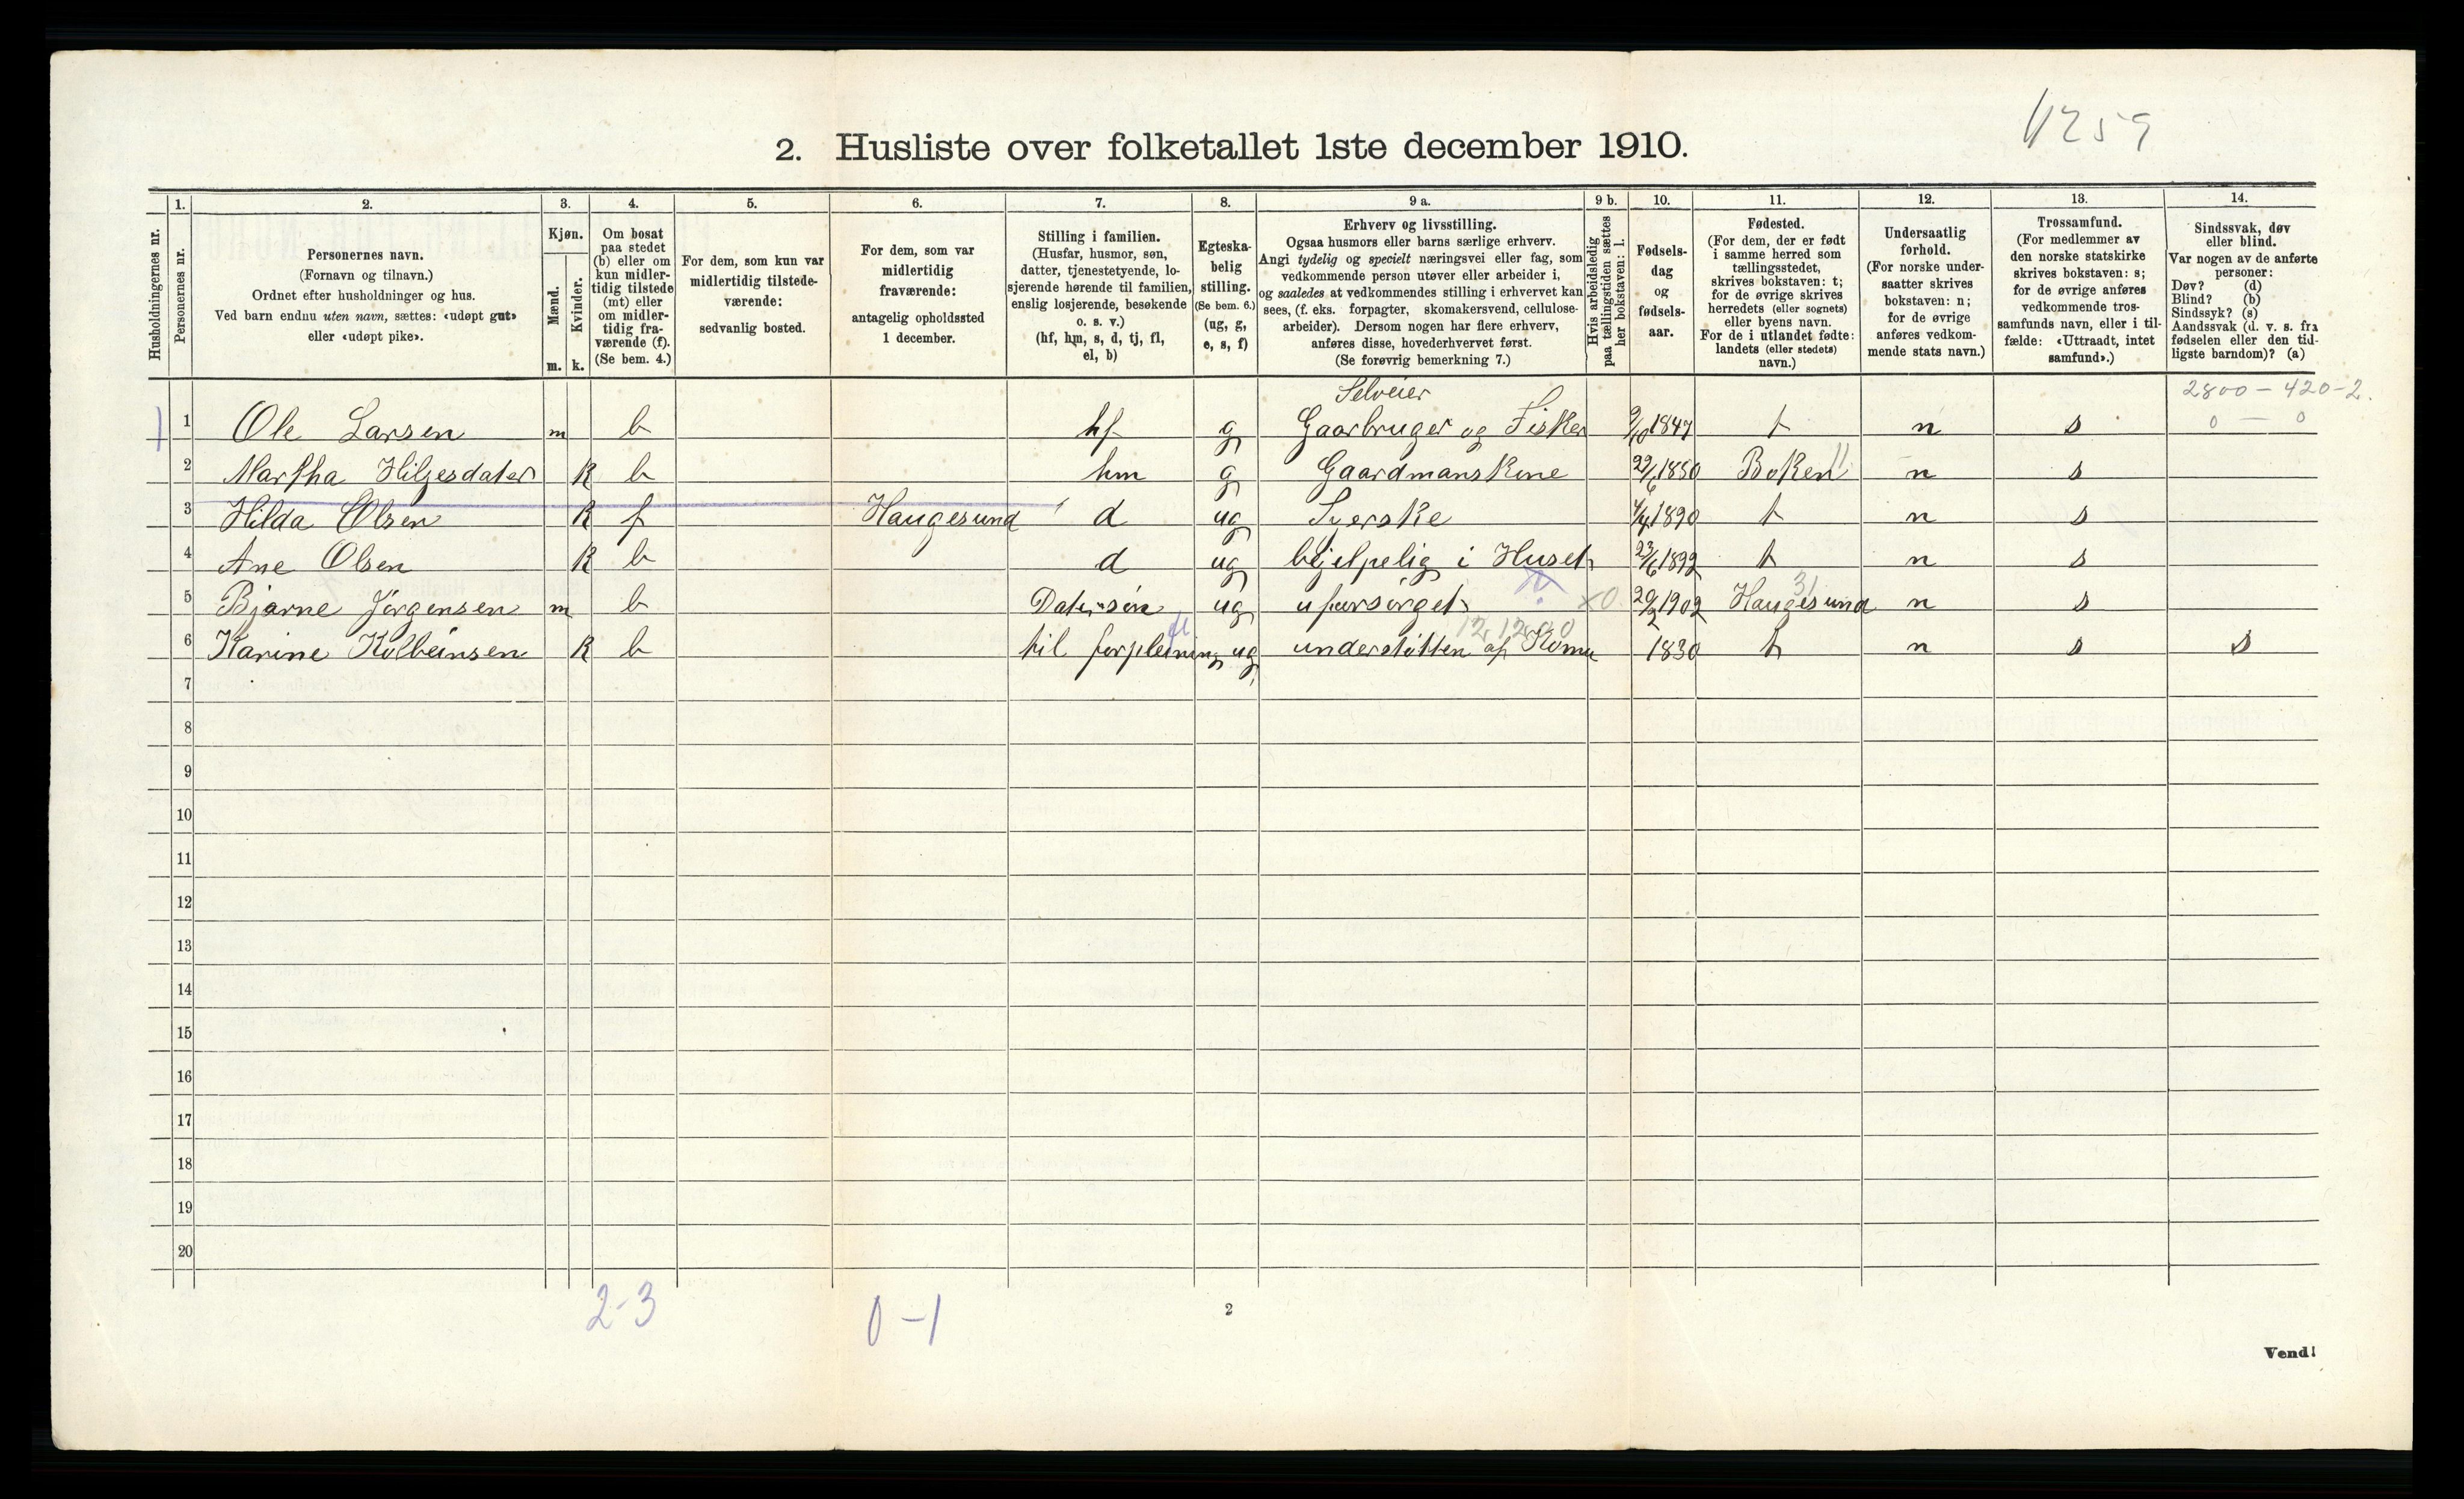 1259
2. Husliste over folketallet 1ste december 1910.
1. 2. 3. 4. 5. 6. 7. 8. 9 a. 9 b. 10. 11. 12. 13. 14.
Husholdningernes nr.
Personernes nr.
Personernes navn.
(Fornavn og tilnavn.)
Ordnet efter husholdninger og hus.
Ved barn endnu uten navn, sættes: «udøpt gut»
eller «udøpt pike».
Kjøn.
Mænd.
Kvinder.
m. k.
Om bosat
paa stedet
(b) eller om
kun midler-
tidig tilstede
(mt) eller
om midler-
tidig fra-
værende (f).
(Se bem. 4.)
For dem, som kun var
midlertidig tilstede-
værende:
sedvanlig bosted.
For dem, som var
midlertidig
fraværende:
antagelig opholdssted
1 december.
Stilling i familien.
(Husfar, husmor, søn,
datter, tjenestetyende, lo-
sjerende hørende til familien,
enslig losjerende, besøkende
o. s. v.)
(hf, hm, s, d, tj, fl,
el, b)
Egteska-
belig
stilling.
(Se bem. 6.)
(ug, g,
e, s, f)
Erhverv og livsstilling.
Ogsaa husmors eller barns særlige erhverv.
Angi tydelig og specielt næringsvei eller fag, som
vedkommende person utøver eller arbeider i,
og saaledes at vedkommendes stilling i erhvervet kan
sees, (f. eks. forpagter, skomakersvend, cellulose-
arbeider). Dersom nogen har flere erhverv,
anføres disse, hovederhvervet først.
(Se forøvrig bemerkning 7.)
Hvis arbeidsledig
paa tællingstiden sættes
her bokstaven: l.
Fødsels-
dag
og
fødsels-
aar.
Fødested.
(For dem, der er født
i samme herred som
tællingsstedet,
skrives bokstaven: t;
for de øvrige skrives
herredets (eller sognets)
eller byens navn.
For de i utlandet fødte:
landets (eller stedets)
navn.)
Undersaatlig
forhold.
(For norske under-
saatter skrives
bokstaven: n;
for de øvrige
anføres vedkom-
mende stats navn.)
Trossamfund.
(For medlemmer av
den norske statskirke
skrives bokstaven: s;
for de øvrige anføres
vedkommende tros-
samfunds navn, eller i til-
fælde: «Uttraadt, intet
samfund».)
Sindssvak, døv
eller blind.
Var nogen av de anførte
personer:
Døv? (d)
Blind? (b)
Sindssyk? (s)
Aandssvak (d. v. s. fra
fødselen eller den tid-
ligste barndom)? (a)
Selveier 2800 - 420-2.
0 - 0
1 1 Ole Larsen m b hf g Gaarbruger og Fisker 9/10 1847 t n s
2 Martha Hilgesdater K b hm g Gaardmanskone 29/6 1850 Boken 11 n s
3 Hilda Olsen K f Haugesund d ug Syerske 4/4 1890 t n s
4 Ane Olsen K b d ug bejelpelig i Huset 23/6 1892 t n s
5 Bjarne Jørgensen m b Datersøn ug uforsørget x0 20/2 1902 Haugesund 31 n s
12,12,00
6 Karine Kolbeinsen K b til forpleining fl ug understøtten af Komu 1830 t n s s
7
8
9
10
11
12
13
14
15
16
17
18
19
20
2-3 0-1
2
Vend!